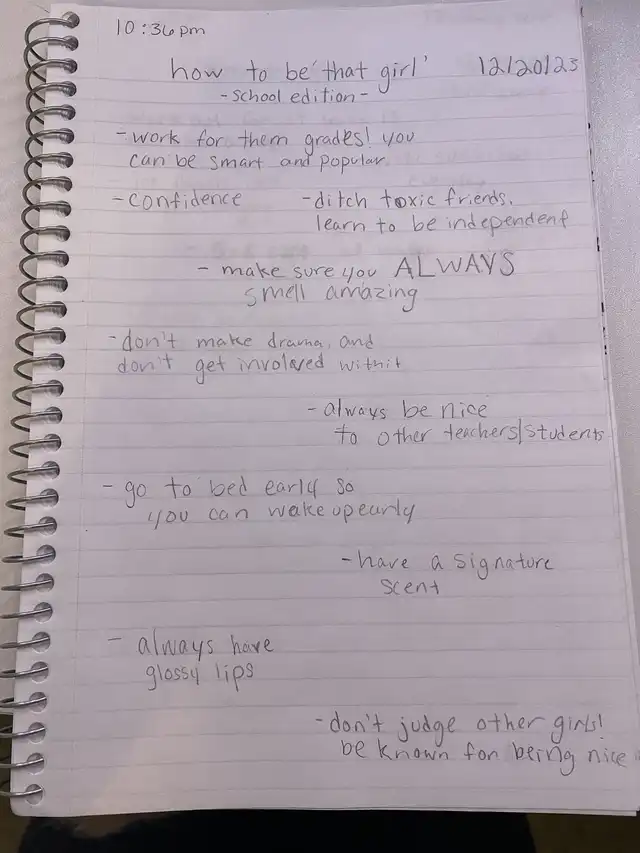 10:36pm
how to be 'that girl' 12/20/23
- school edition -
- work for them grades! you
can be smart and popular
- confidence
- ditch toxic friends.
learn to be independent
- make sure you ALWAYS
smell amazing
- don't make drama, and
don't get involved withit
- always be nice
to other teachers/students
- go to bed early so
you can wake up early
- have a signature
scent
- always have
glossy lips
- don't judge other girls!
be known for being nice